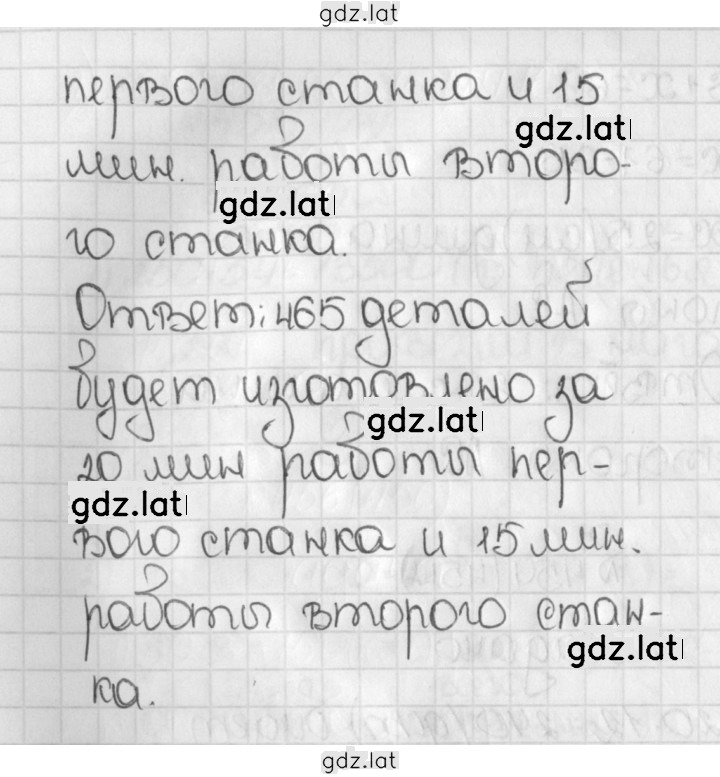 gdz.lat
первого станка и 15
gdz.lat
мин. работы второ-
gdz.lat
го станка.
Ответ: 465 деталей
будет изготовлено за
gdz.lat
20 мин работы пер-
gdz.lat
вого станка и 15 мин.
работы второго стан-
gdz.lat
ка.
gdz.lat